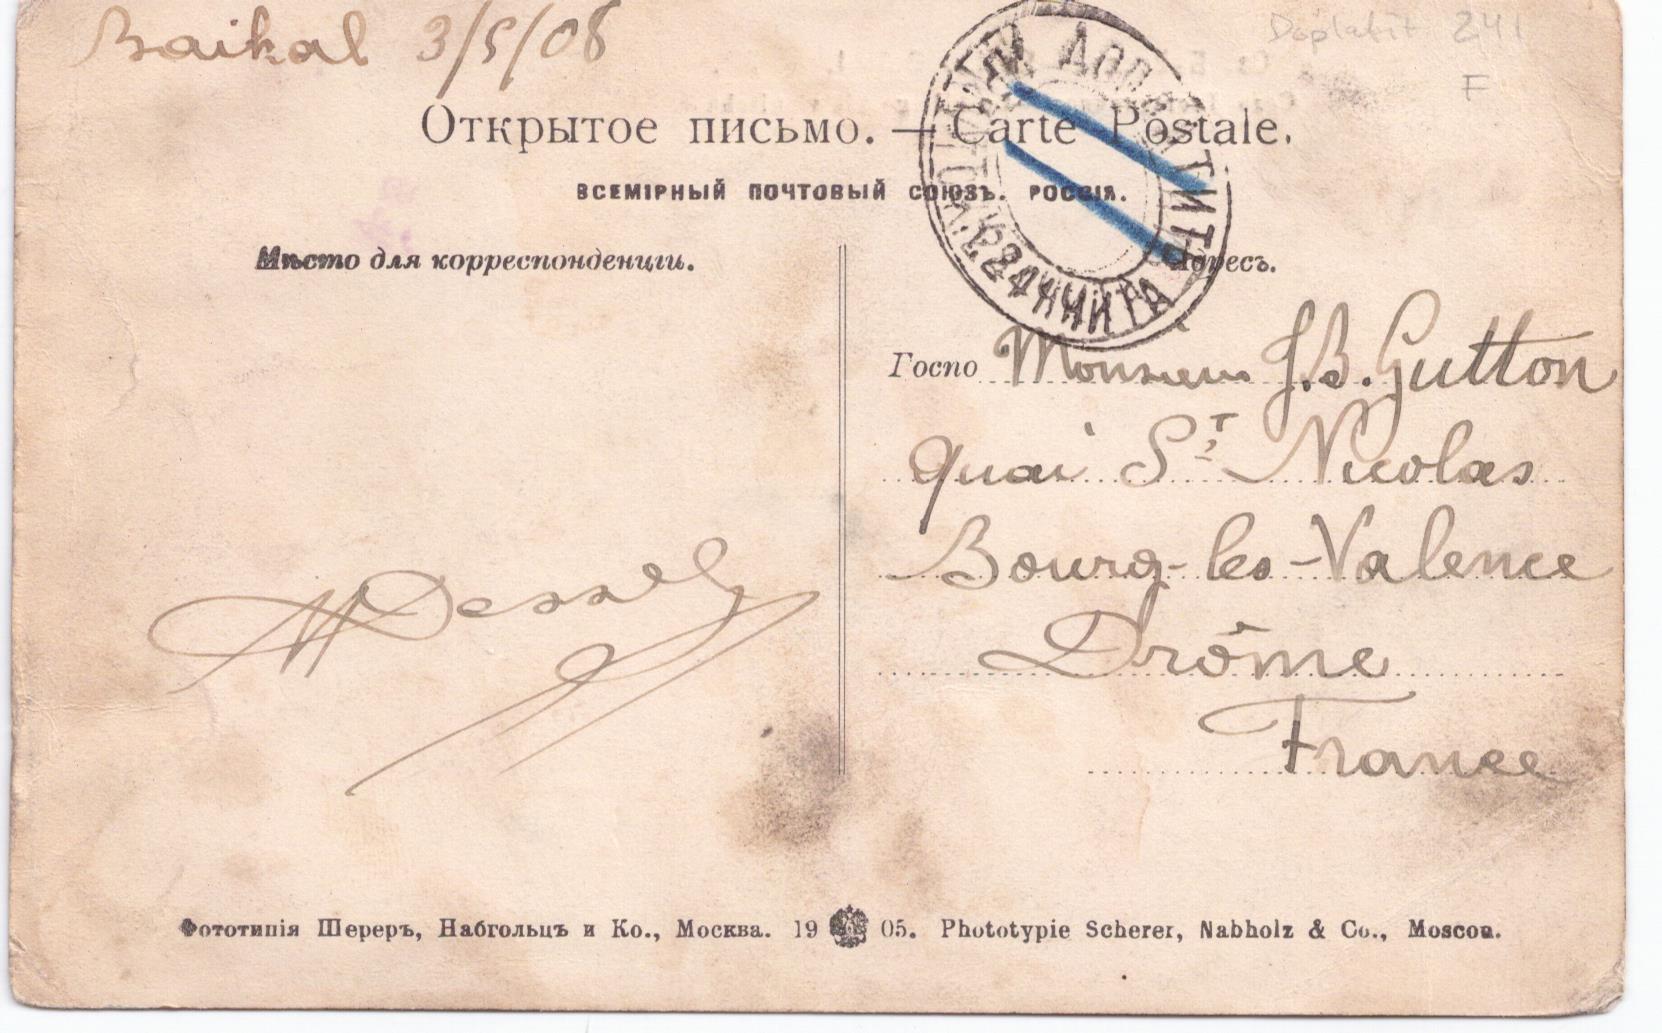 Baikal 3/5/08
Doplatit 241
F
Открытое письмо. — Carte Postale.
ВСЕМІРНЫЙ ПОЧТОВЫЙ СОЮЗЪ. РОССІЯ.
Мѣсто для корреспонденціи.
Адресъ.
ДОПЛАТИТЬ
ЧИТА
Госпо Monsieur J.B. Gutton
Quai St Nicolas
Bourg-les-Valence
Drôme
France
Фототипія Шереръ, Набгольцъ и Ко., Москва. 19 05. Phototypie Scherer, Nabholz & Co., Moscou.